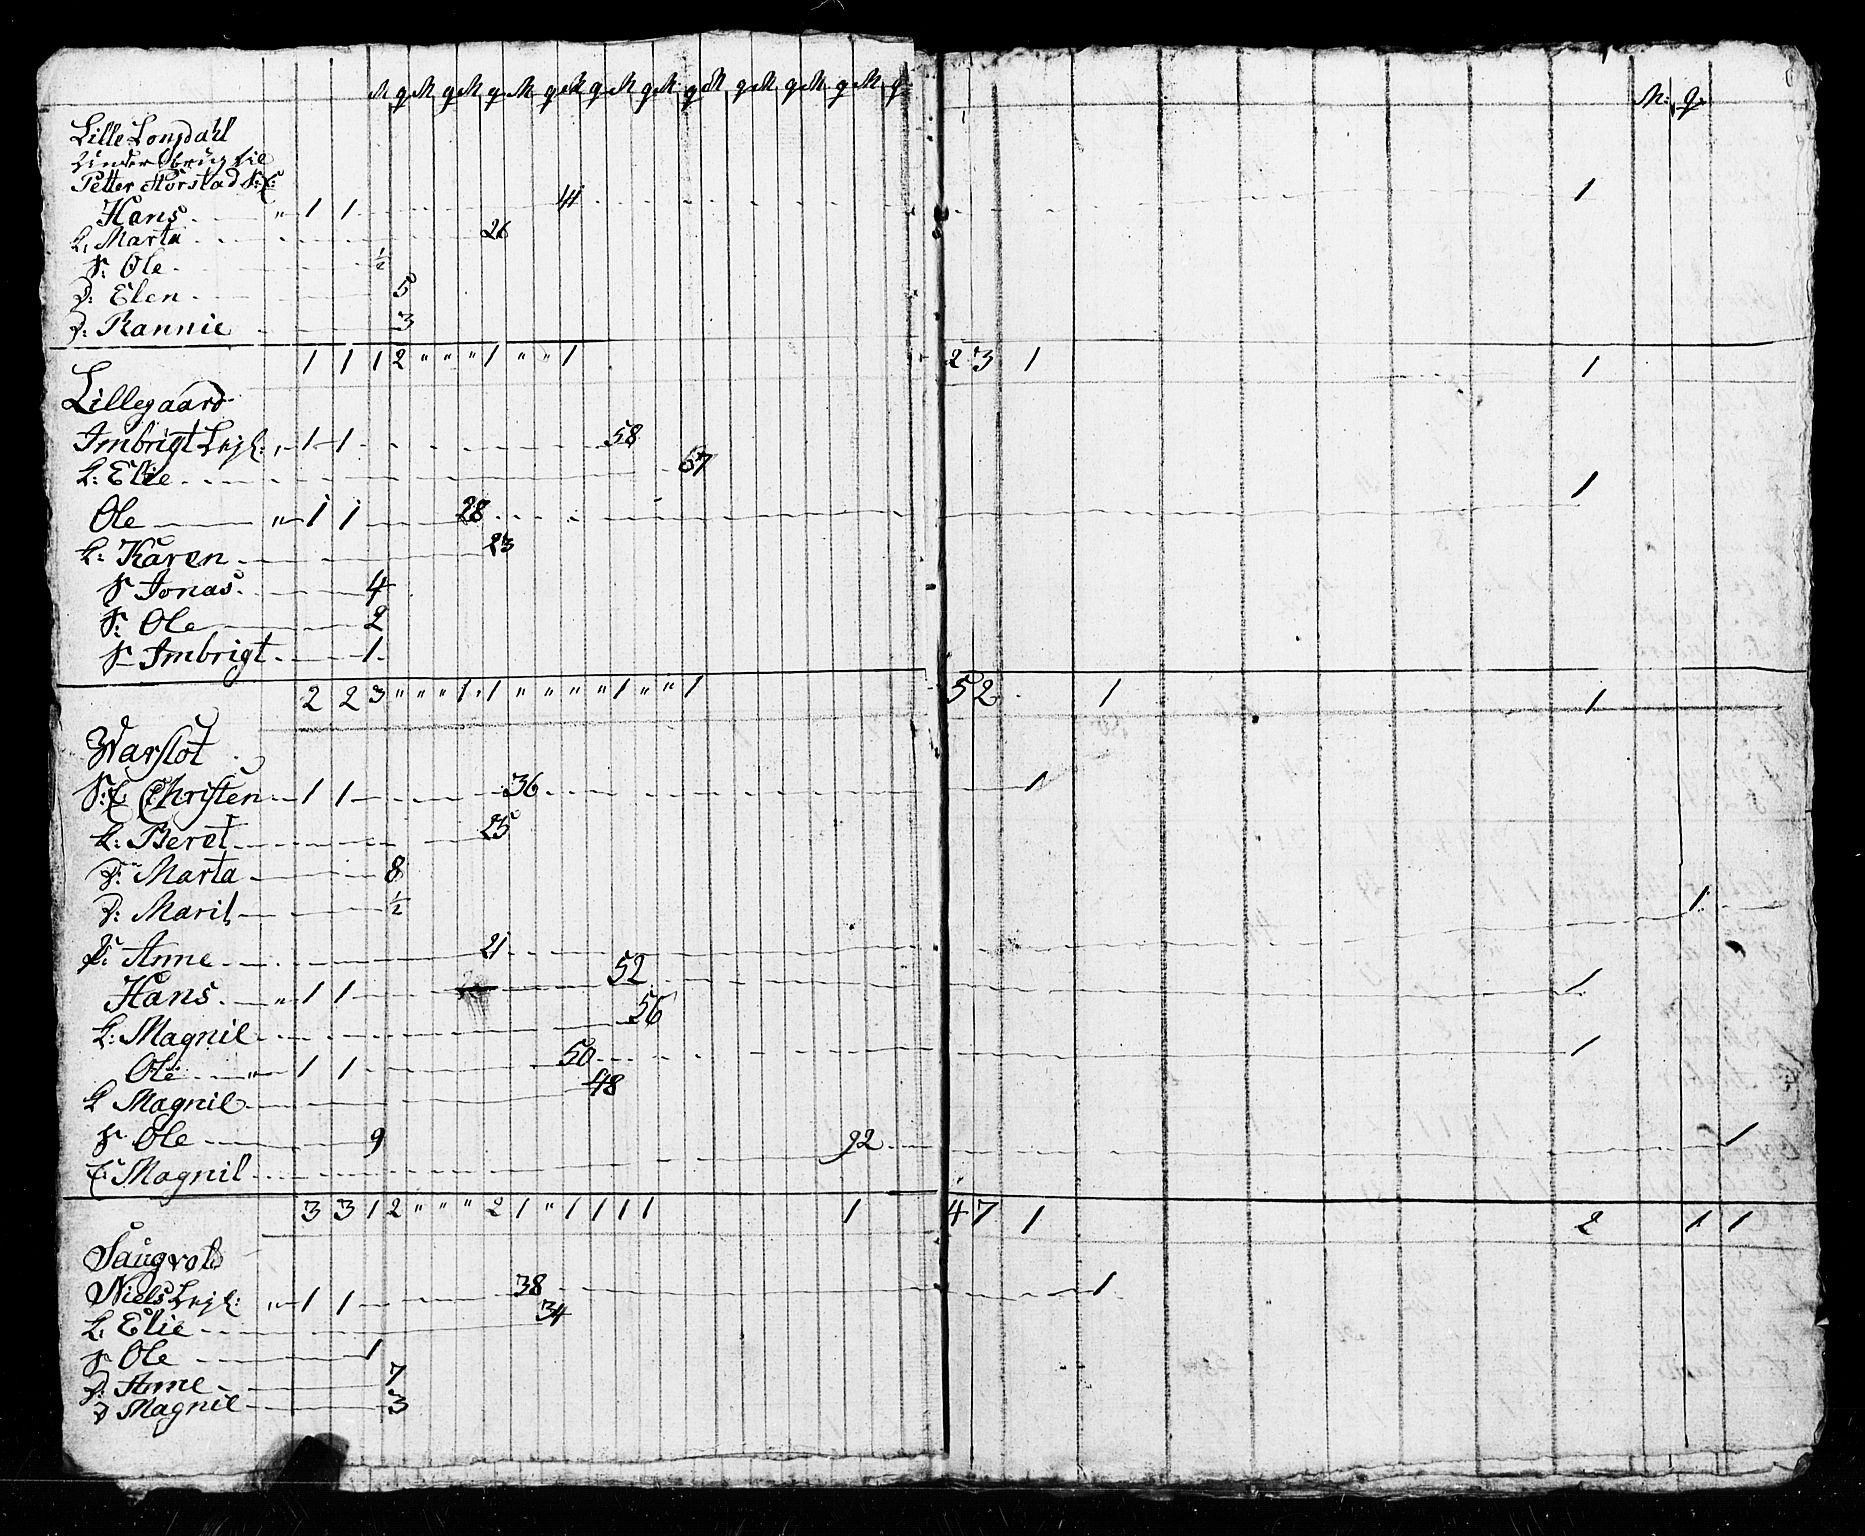 M q M q M q M q M q M q M q M q M q M q M q M: q.
Lille Longdahl
Under brug til
Petter Horstad S: E: 1
Hans " 1 1 41
K: Marta 26
S: Ole ½
D: Elen 5
D: Rannie 3
1 1 1 2 " " " 1 " " 1 2 3 1 1
Lillegaard
Imbrigt Lejl: " 1 1 58
K: Elie 57
Ole " 1 1 28 1
K: Karen 23
S Jonas 4
S: Ole 2
S Imbrigt 1
2 2 3 " " " 1 " 1 " " " " 1 " " 1 5 2 1 1
Warslot
S: E Christen 1 1 36 1
K: Beret 25
D: Marta 8
D: Marit ½
Anne 21 1
Hans " 1 1 52 1
K: Magnil 56
Ole " 1 1 50 1
K Magnil 48
S Ole 9
E: Magnil 92 1
3 3 1 2 " " " 2 1 " 1 1 1 1 1 4 7 1 2 1 1
Niels Lejl: " 1 1 38 1
K: Elie 34
S Ole 1
D: Anne 7
D Magnil 3